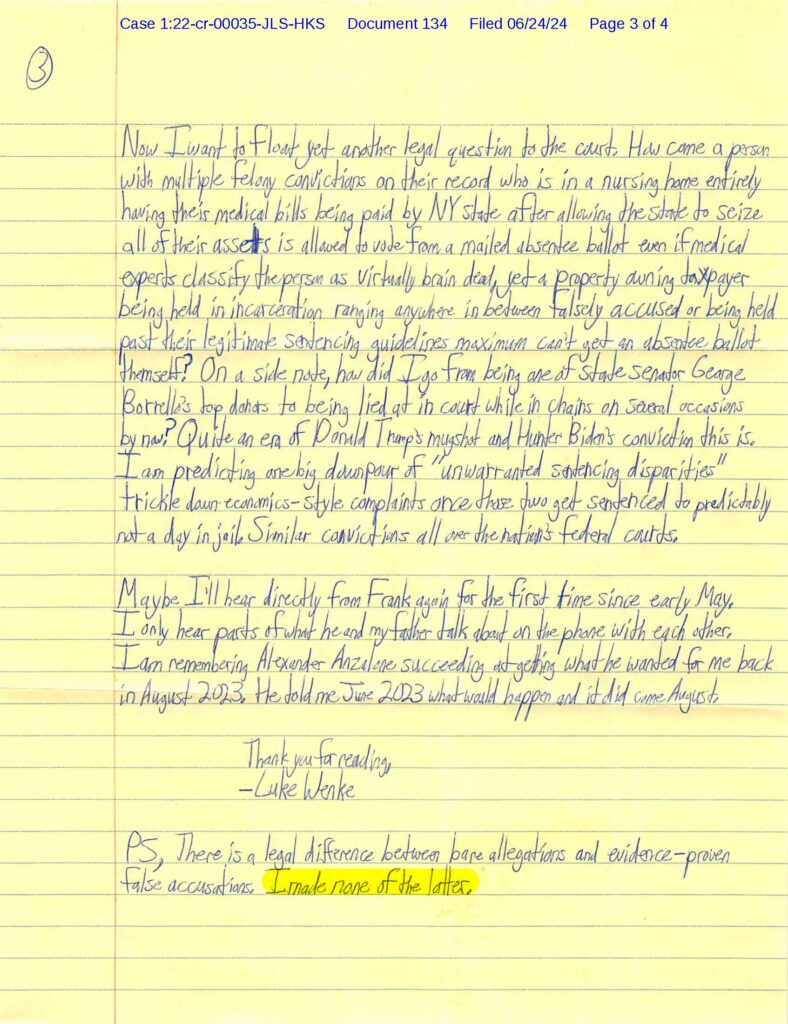 Case 1:22-cr-00035-JLS-HKS Document 134 Filed 06/24/24 Page 3 of 4
3
Now I want to float yet another legal question to the court. How come a person
with multiple felony convictions on their record who is in a nursing home entirely
having their medical bills being paid by NY state after allowing the state to seize
all of their assets is allowed to vote from a mailed absentee ballot even if medical
experts classify the person as virtually brain dead, yet a property owning taxpayer
being held in incarceration ranging anywhere in between falsely accused or being held
past their legitimate sentencing guidelines maximum can't get an absentee ballot
themself? On a side note, how did I go from being one of state senator George
Borrello's top donors to being lied at in court while in chains on several occasions
by now? Quite an era of Donald Trump's mugshot and Hunter Biden's conviction this is.
I am predicting one big downpour of "unwarranted sentencing disparities"
trickle down-economics-style complaints once those two get sentenced to predictably
not a day in jail. Similar convictions all over the nation's federal courts.
Maybe I'll hear directly from Frank again for the first time since early May.
I only hear parts of what he and my father talk about on the phone with each other.
I am remembering Alexander Anzalone succeeding at getting what he wanted for me back
in August 2023. He told me June 2023 what would happen and it did come August.
Thank you for reading,
-Luke Wenke
PS, There is a legal difference between bare allegations and evidence-proven
false accusations. I made none of the latter.